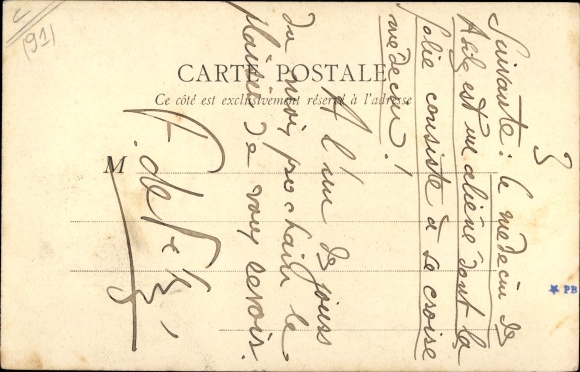 5
Suivante : le médecin des
Asiles est un aliéné dont la
folie consiste à se croire
médecin !
A l'un des jours
du mois prochain le
plaisir de vous revoir.
CARTE POSTALE
Ce côté est exclusivement réservé à l'adresse
M
191
PB